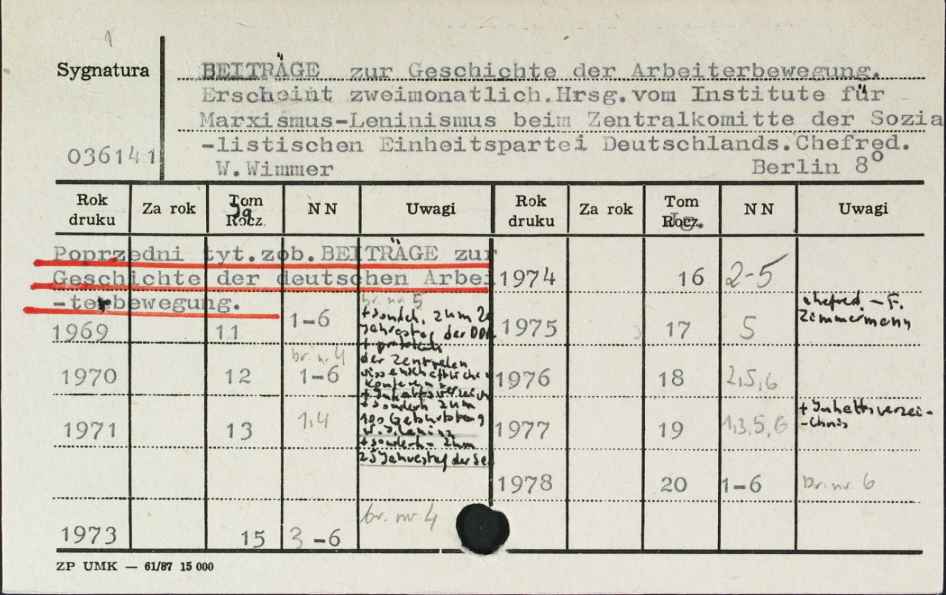 1
Sygnatura
BEITRÄGE zur Geschichte der Arbeiterbewegung.
Erscheint zweimonatlich.Hrsg.vom Institute für
Marxismus-Leninismus beim Zentralkomitte der Sozia
-listischen Einheitspartei Deutschlands.Chefred.
036141
W.Wimmer Berlin 8°
Rok druku Za rok Tom Rocz. NN Uwagi Rok druku Za rok Tom Rocz. NN Uwagi
Jg
Poprzedni tyt.zob.BEITRÄGE zur
Geschichte der deutschen Arbei
-terbewegung.
1969 11 1-6 br. nr 5
+ sonderh. zum 20
Jahrestag der DDR
+ protokoll
der Zentralen
wissenschaftliche
Konferenz
1970 12 br. n. 4 1-6
+ Inhaltsverzeich
+ sonderh zum
100 Geburtstag
W. I. Lenins
1971 13 1,4
+ sonderh. zum
25 Jahrestag der Se
1973 15 3-6 br. nr 4
1974 16 2-5
1975 17 5 chefred. — F.
Zimmermann
1976 18 2,5,6
1977 19 1,3,5,6 + Inhaltsverzei-
-chnis
1978 20 1-6 br. nr 6
ZP UMK — 61/87 15 000